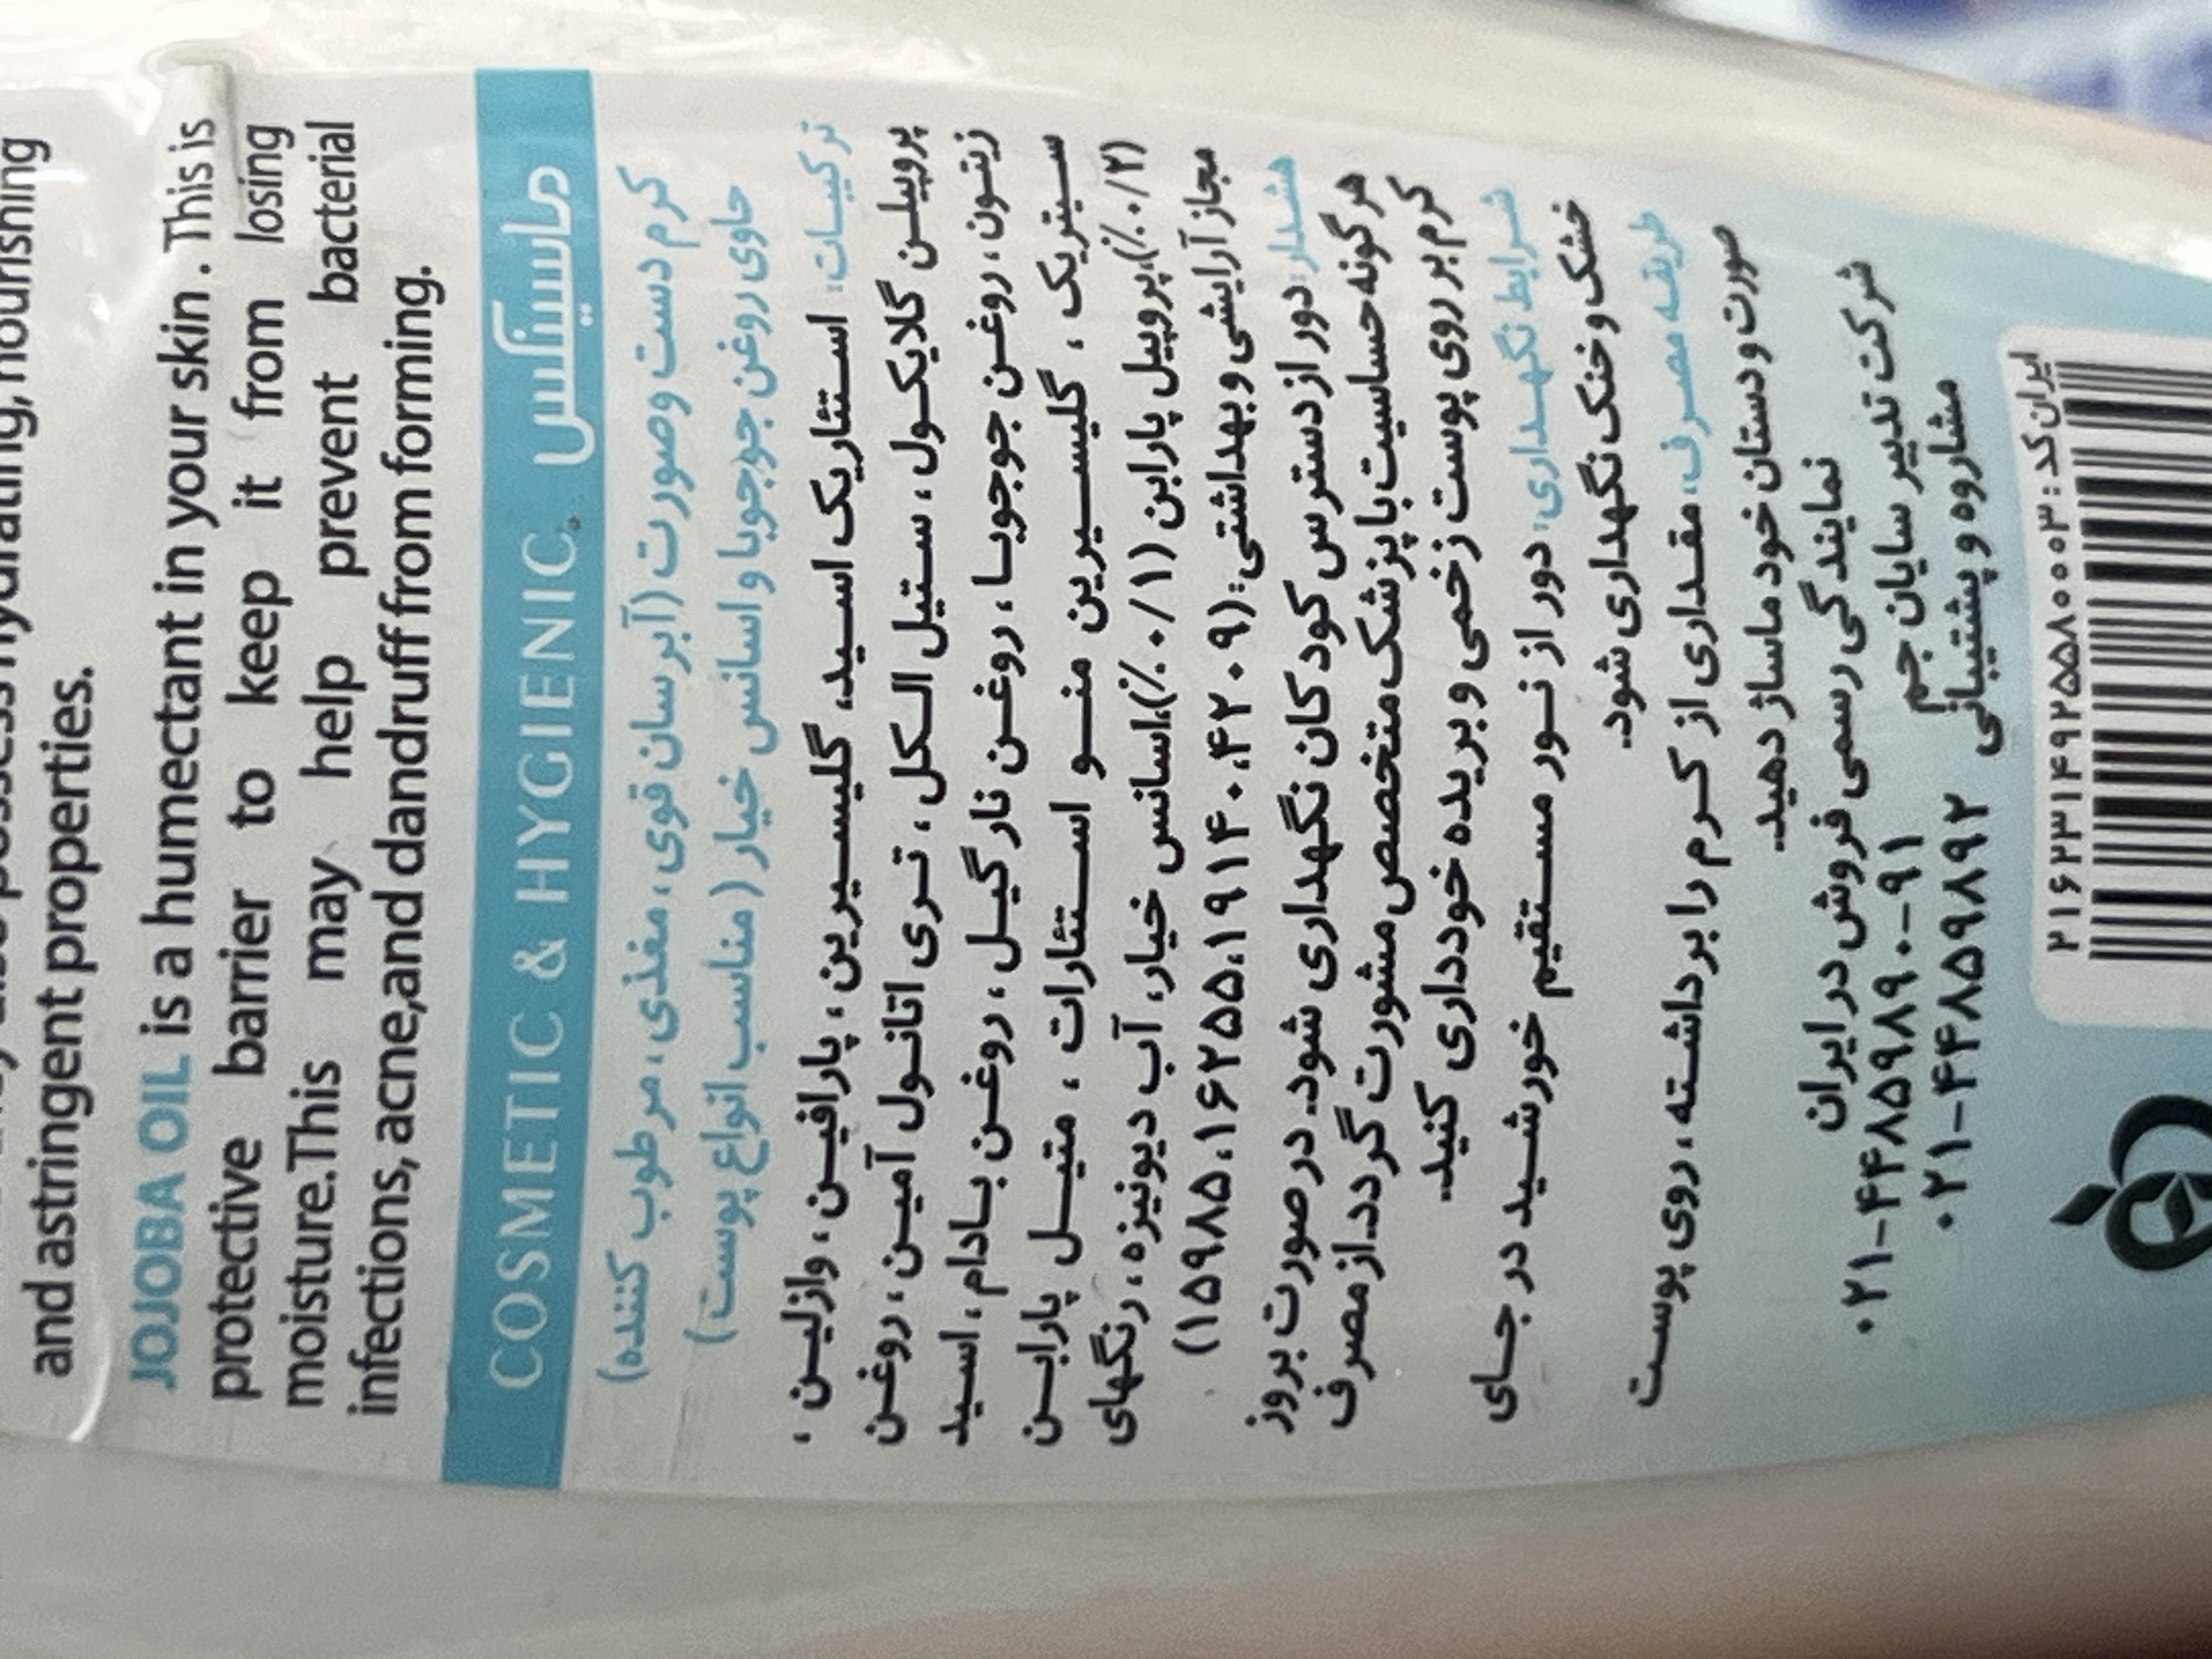 hydrating, nourishing
and astringent properties.
JOJOBA OIL is a humectant in your skin . This is
protective barrier to keep it from losing
moisture.This may help prevent bacterial
infections, acne,and dandruff from forming.
COSMETIC & HYGIENIC
کرم دست و صورت (آبرسان قوی، مغذی، مرطوب کننده)
حاوی روغن جوجوبا و اسانس خیار ( مناسب انواع پوست)
ترکیبات: استئاریک اسید، گلیسیرین ، پارافین ، وازلین ،
پروپیلن گلایکول ، ستیل الکل ، تری اتانول آمین ، روغن
زیتون، روغن جوجوبا، روغن نارگیل ، روغن بادام ، اسید
سیتریک ، گلیسیرین منو استئارات ، متیل پارابن
(۰/۲٪)،پروپیل پارابن (۰/۱٪)،اسانس خیار، آب دیونیزه ، رنگهای
مجاز آرایشی و بهداشتی: (۱۵۹۸۵،۱۶۲۵۵،۱۹۱۴۰،۴۲۰۹۰)
هشدار: دور از دسترس کودکان نگهداری شود. در صورت بروز
هر گونه حساسیت با پزشک متخصص مشورت گردد. از مصرف
کرم بر روی پوست زخمی و بریده خودداری کنید.
شرایط نگهداری: دور از نور مستقیم خورشید در جای
خشک و خنک نگهداری شود.
طریقه مصرف: مقداری از کرم را برداشته ، روی پوست
صورت و دستان خود ماساژ دهید.
نمایندگی رسمی فروش در ایران
شرکت تدبیر سایان جم ۰۲۱-۴۴۸۵۹۸۹۰-۹۱
مشاروه و پشتیبانی ۰۲۱-۴۴۸۵۹۸۹۲
ایران کد: ۲۱۶۲۳۱۴۹۲۵۵۸۰۰۰۳